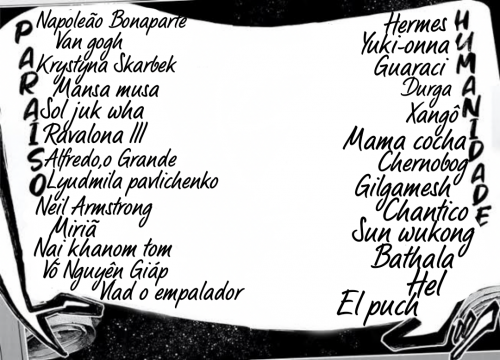 PARAÍSO
Napoleão Bonaparte
Van gogh
Krystyna Skarbek
Mansa musa
Sol juk wha
Ravalona III
Alfredo,o Grande
Lyudmila pavlichenko
Neil Armstrong
Miriã
Nai khanom tom
Võ Nguyên Giáp
Vlad o empalador
HUMANIDADE
Hermes
Yuki-onna
Guaraci
Durga
Xangô
Mama cocha
Chernobog
Gilgamesh
Chantico
Sun wukong
Bathala
Hel
El puch